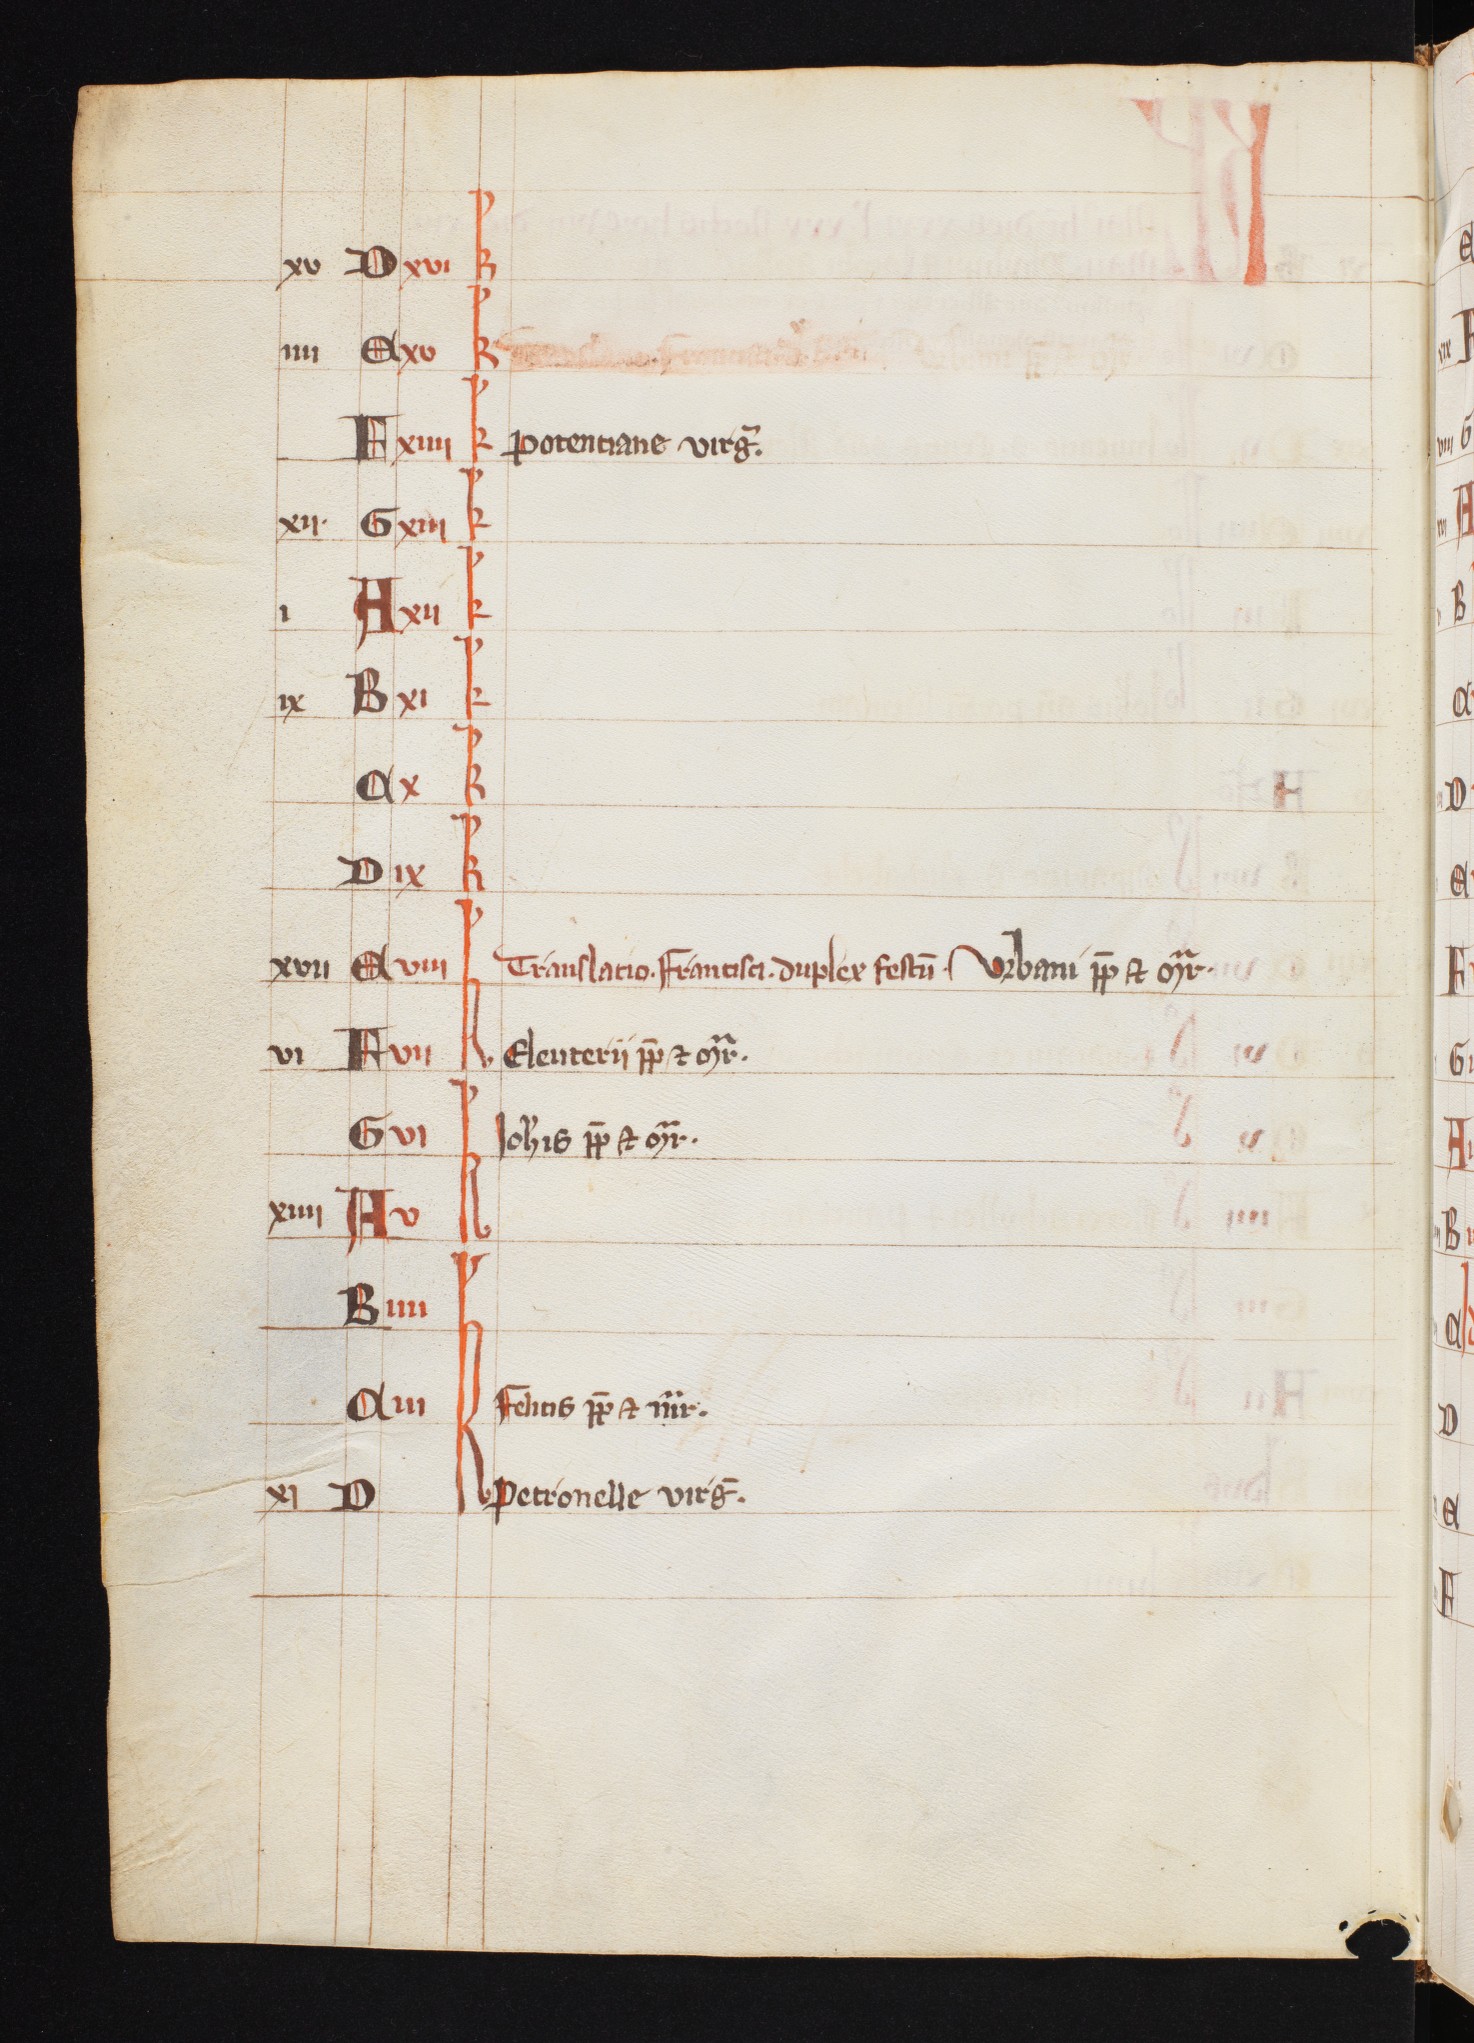 xv D xvi kł
iiii e xv kł
F xiiii kł potentiane virg̃.
xii. G xiii kł
i A xii kł
ix B xi kł
C x kł
D ix kł
xvii e viii kł Translatio. francisci. duplex festū. Vrbani pp̄ et mr̃.
vi F vii kł Eleuterii pp̄ et mr̃.
G vi kł Joh̃is pp̄ et mr̃.
xiiii A v kł
B iiii kł
C iii kł Felicis pp̄ et mr̃.
xi D kł Petronelle virg̃.